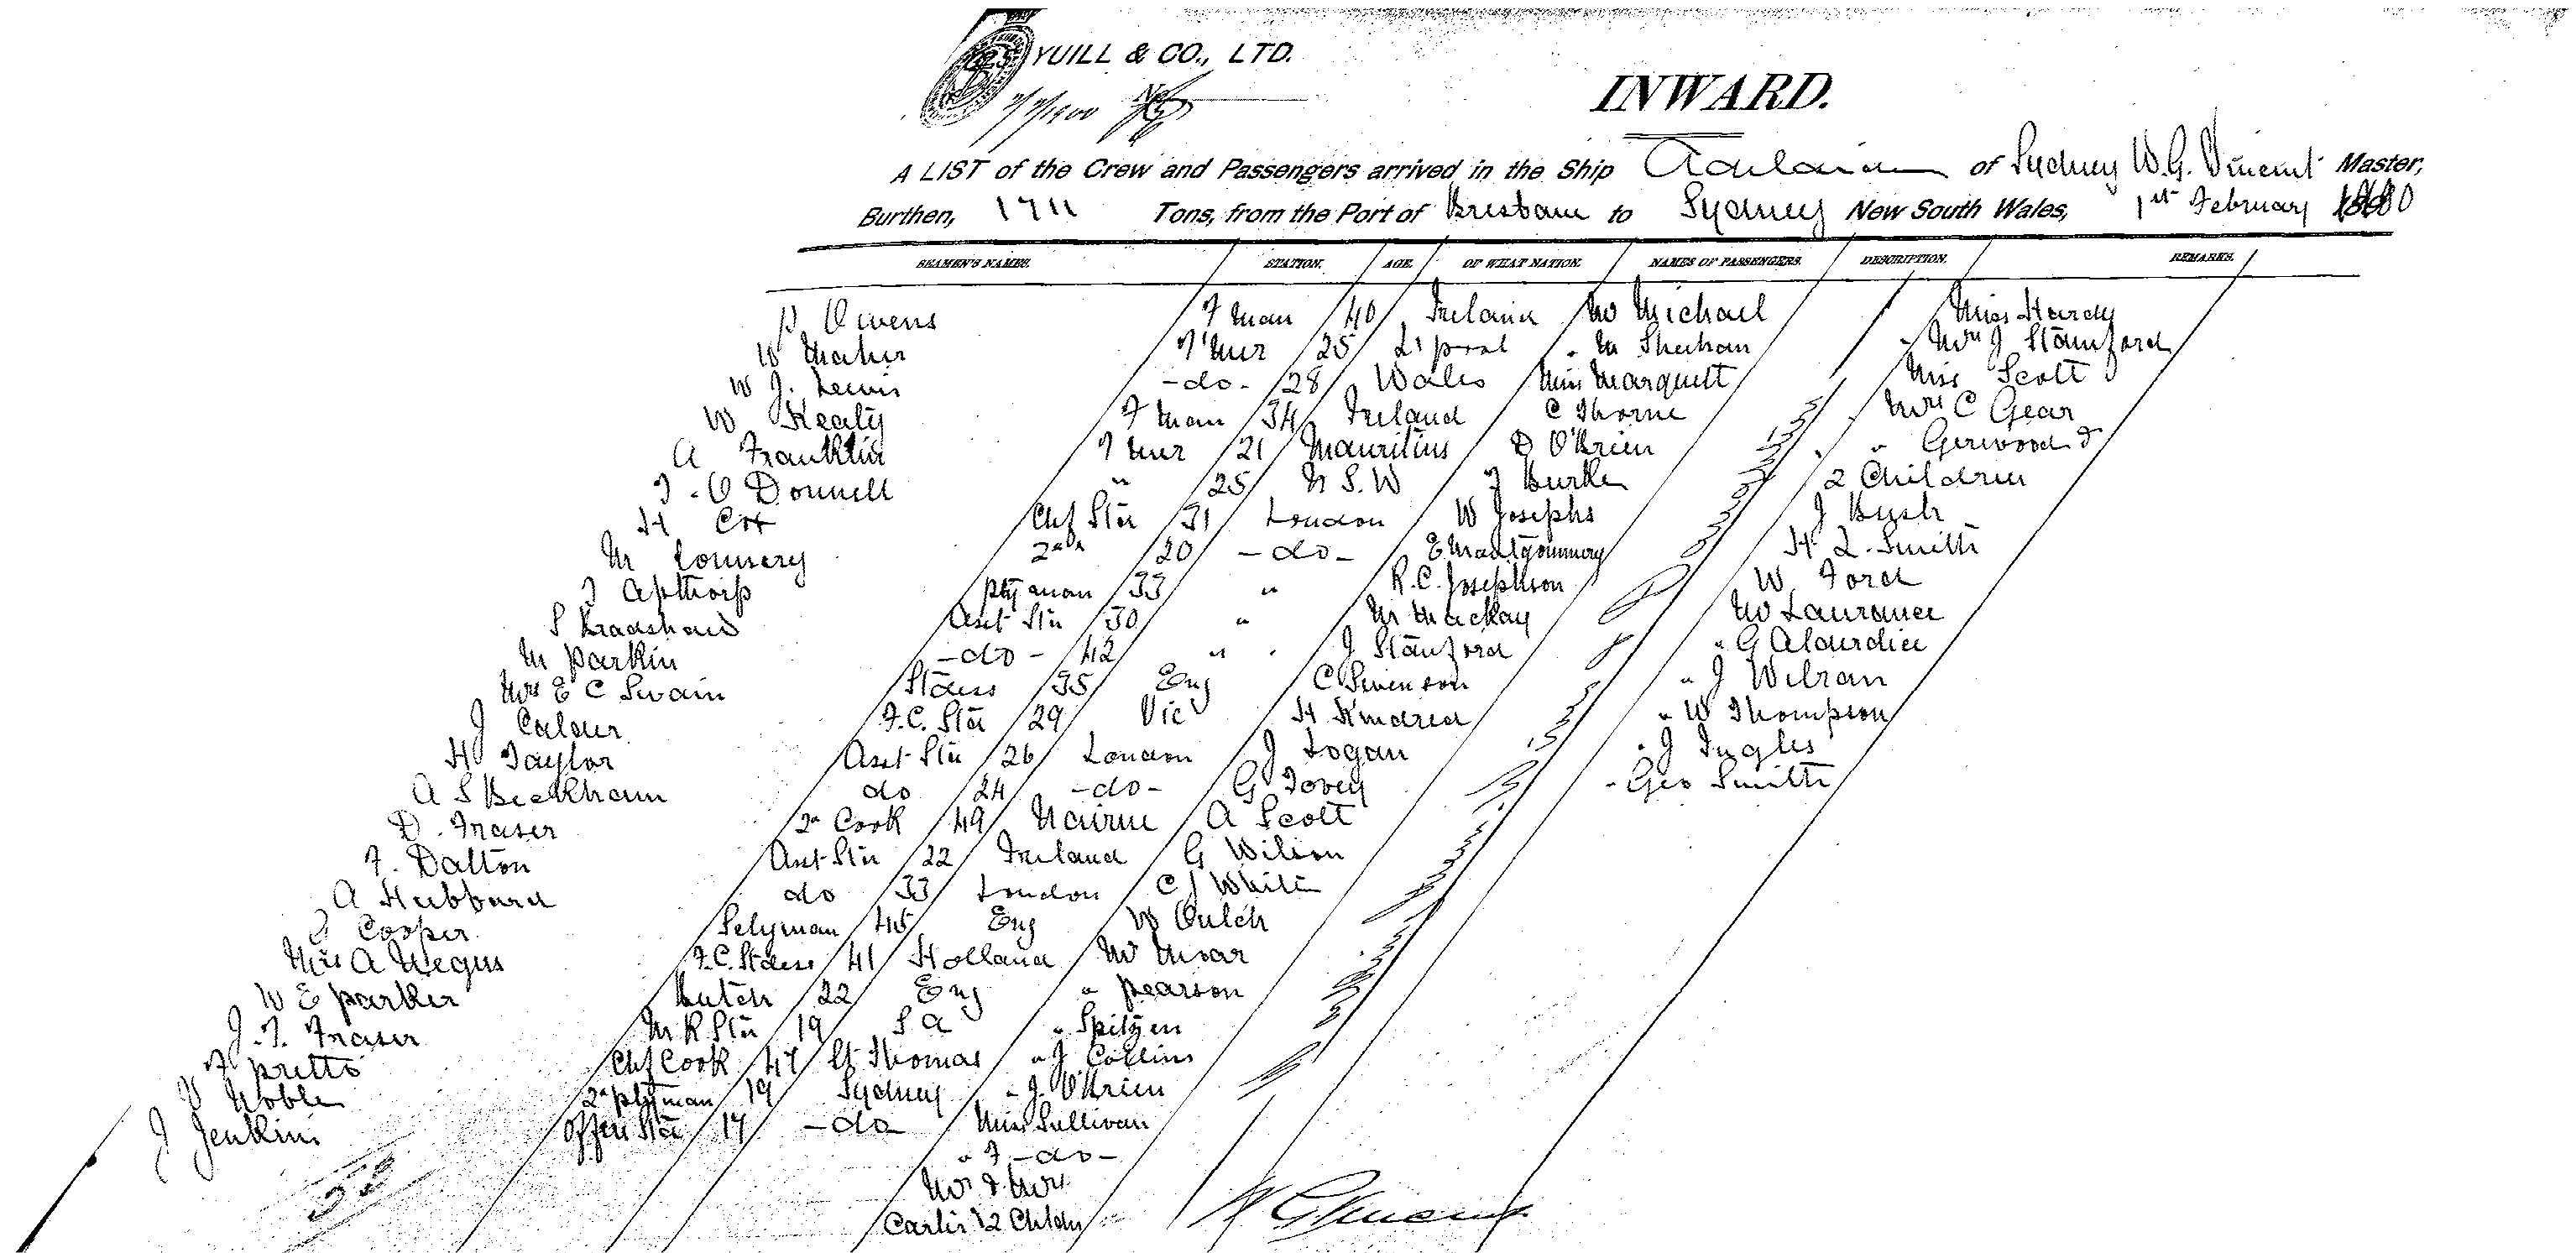 YUILL & CO., LTD.
INWARD.
A LIST of the Crew and Passengers arrived in the Ship of Sydney W. G. Vincent Master,
Burthen, 1711 Tons, from the Port of Brisbane to Sydney New South Wales, 1st February
SEAMEN'S NAMES. STATION. AGE. OF WHAT NATION. NAMES OF PASSENGERS. DESCRIPTION. REMARKS.
P. Owens F man 40 Ireland Mr Michael Miss Hardy
W Maher 25 L'pool " M Sheehan " Mrs J Stamford
W J. Lewis -do- 28 Wales Miss Marquett Miss Scott
W Kealy F man 34 Ireland C Thorne Mrs C Gear
A Franklin 21 Mauritius D O'Brien " Gerwood &
O Donnell " 25 N S. W J Burke 2 Children
H Cox Chf Std 31 London W Josephs J Bush
M Connery 2nd 20 -do- E Montgommery H L. Smith
J Apthorp Ptyman 33 " R. C. Josephson W Ford
S Bradshaw Asst Std 30 " M Mackay Mr Laurance
M Parkin -do- 42 " J Stanford " G Alderdice
Mrs E C Swain Stdess 35 Eng C Swenson " J Wilran
J Calder F.C. Std 29 Vic H Kindred " W Thompson
H Taylor Asst Std 26 London J Logan " J Ingles
A S Beckham do 24 -do- G Tovey " Geo Smith
D. Fraser 2nd Cook 49 Nairne A Scott
F. Dalton Asst Std 22 Ireland G Wilson
A Hubbard do 33 London C J White
Cooper 45 Eng W Outch
Mrs A Negus F.C. Stdess 41 Holland Mr Moar
W E Parker Butch 22 Eng " Pearson
J. F. Fraser M R Std 19 S A " Spitzen
Pritto Chf Cook 47 St Thomas " J Collins
Noble 2nd Ptyman 19 Sydney " J. O'Brien
J Jenkins Offcrs Std 17 -do- Miss Sullivan
" F -do-
Mr & Mrs
2 Chldn